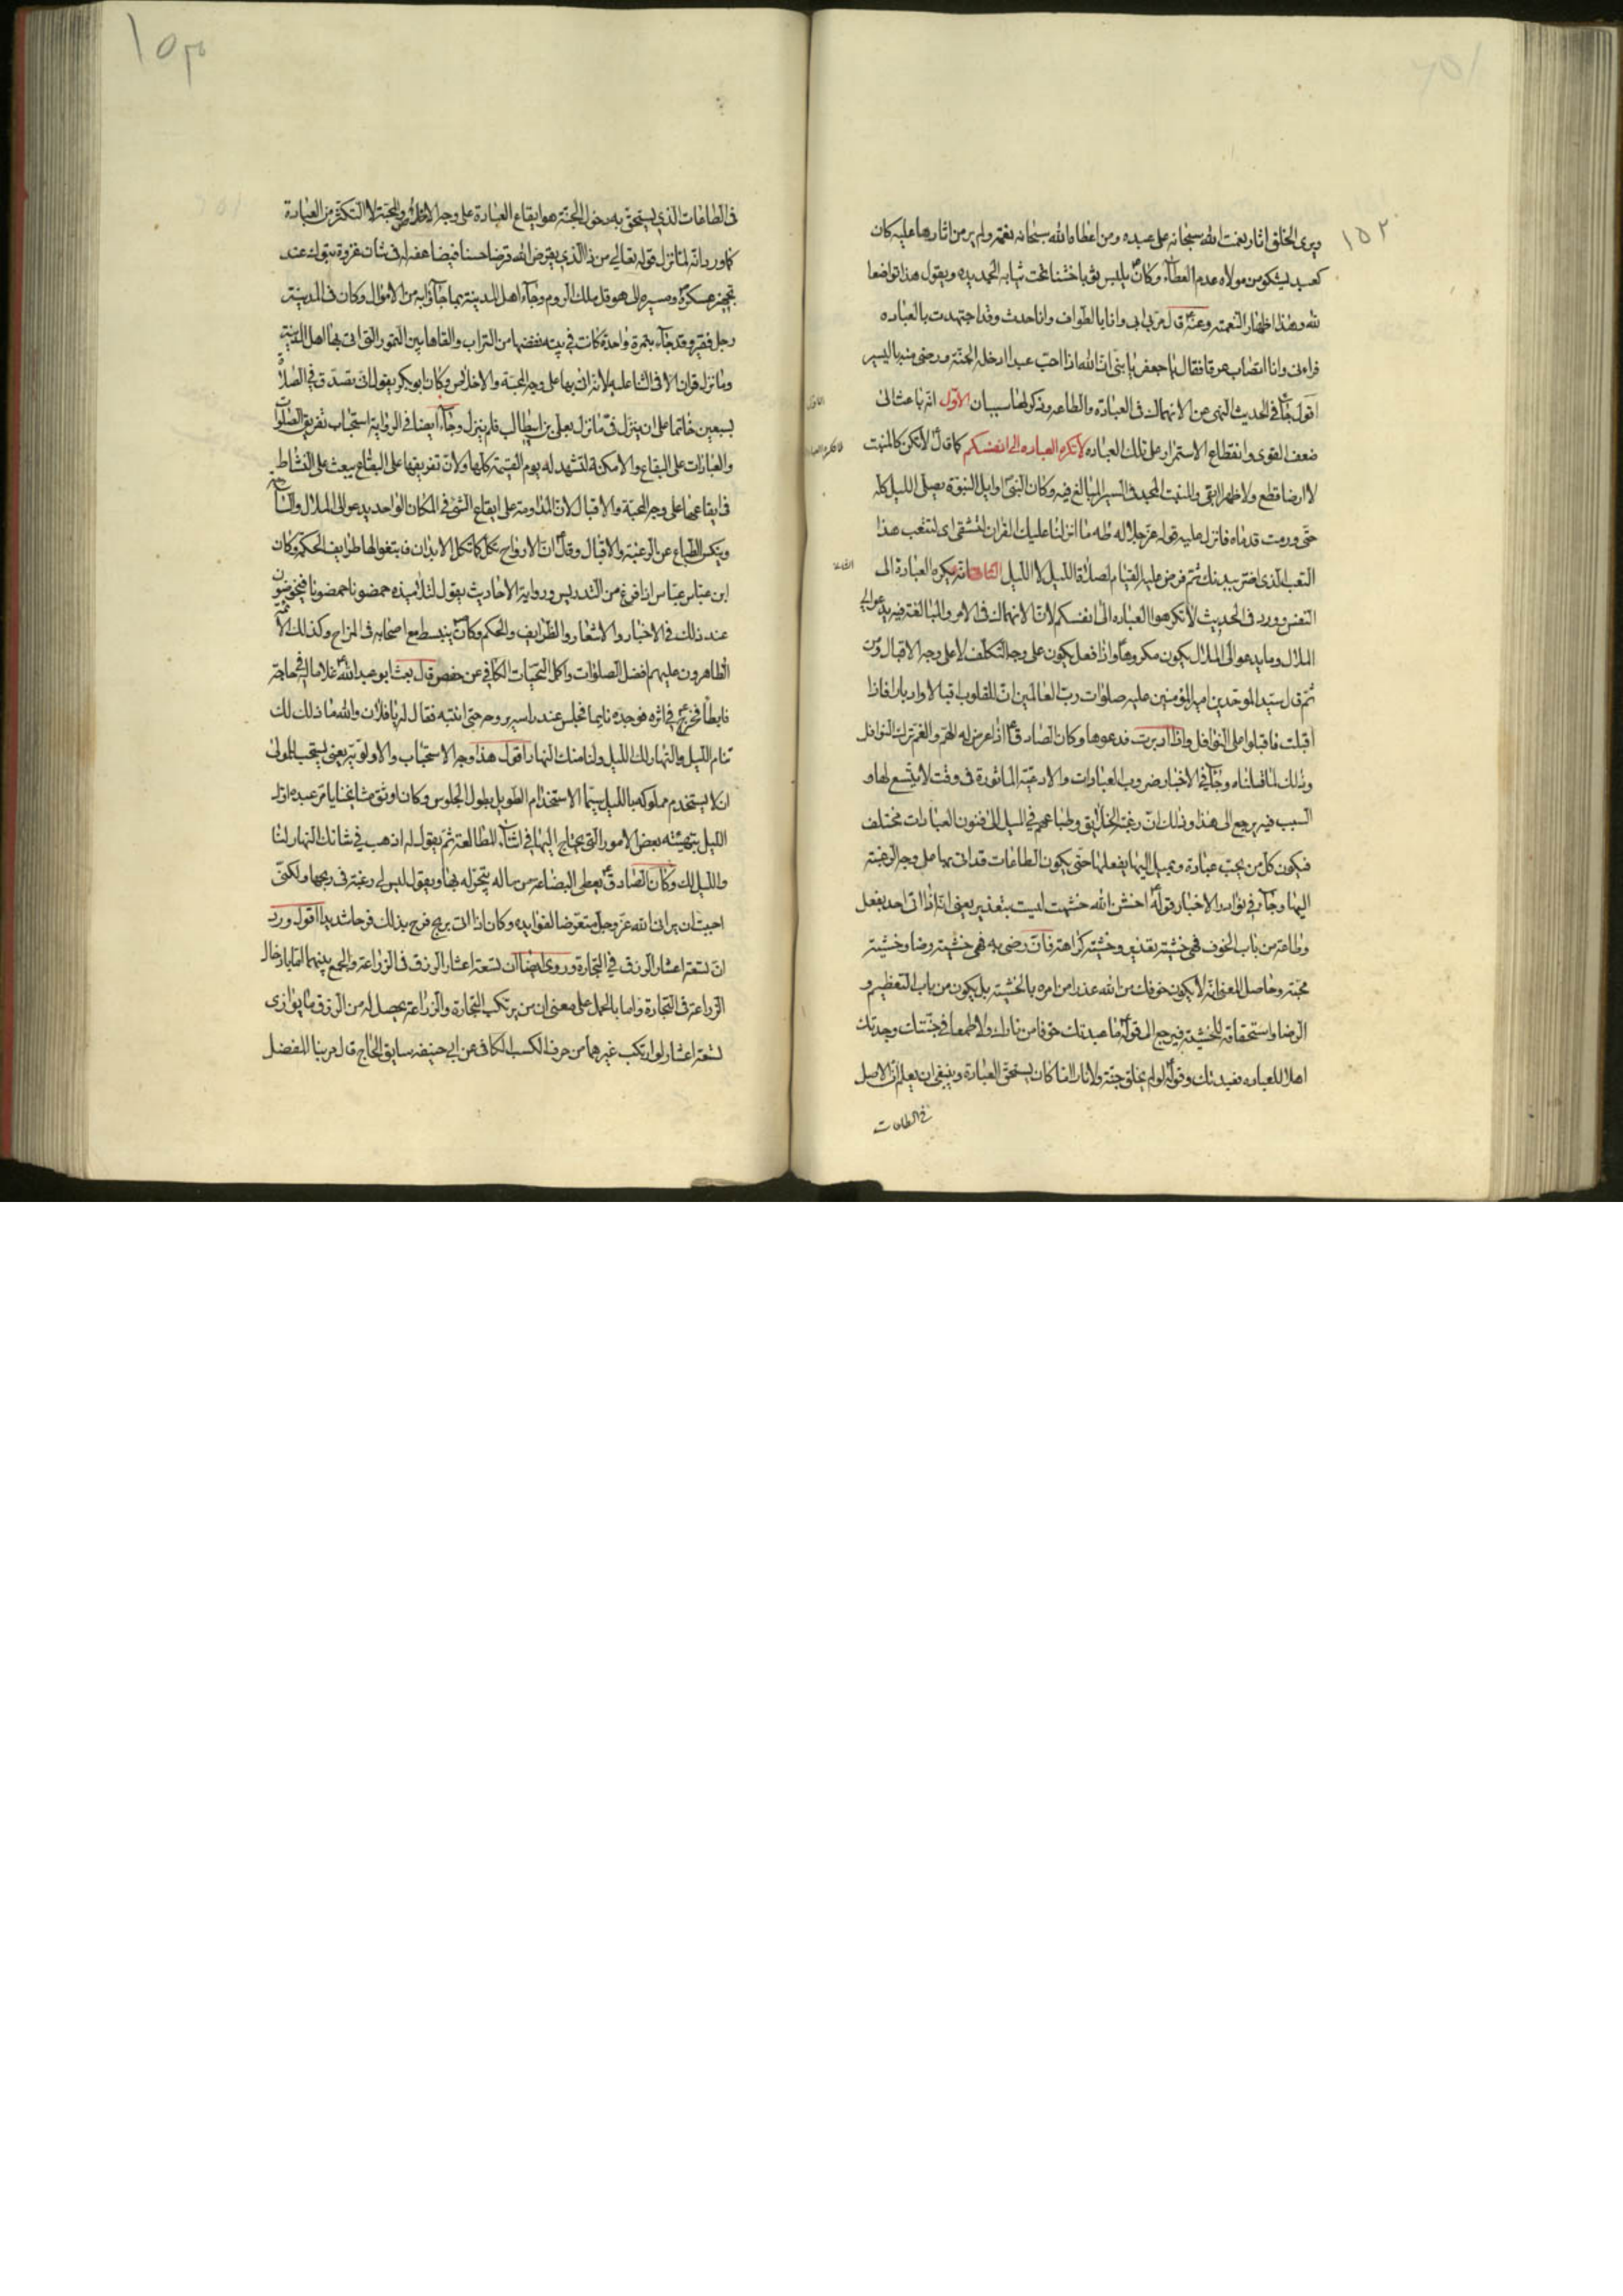 ١٥٢
ويرى الخلق اثار نعمت الله سبحانه على عبده ومن اعطاه الله سبحانه نعمة ولم ير من اثارها عليه كان
كعبد يشكو من مولاه عدم العطآء وكان يلبس ثوبا خشنا تحت ثيابه الجديده ويقول هذا تواضعا
لله وهذا اظهار النعمته وعنه قال مر بي ابي وانا بالطواف وانا حدث وقد اجتهدت بالعباده
فراءنى وانا اتصاب عرقا فقال يا جعفر يا بنى ان الله اذا احب عبدا ادخله الجنة ورضى منه باليسير
اقول جآء فى الحديث النهى عن الانهماك فى العبادة والطاعه وذكر لها سببان الاول انه باعث الى
ضعف القوى وانقطاع الاستمرار على تلك العباده لا تكره العباده الى انفسكم كما قال لا تكن كالمنبت
لا ارضا قطع ولا ظهرا ابقى والمنبت المجد فى السير المبالغ فيه وكان النبى اوايل النبوة يصلى الليل كله
حتى ورمت قدماه فانزل عليه قوله عز جلاله طه ما انزلنا عليك القران لتشقى اى لتتعب هذا
التعب الذى اضر ببدنك ثم فرض عليه القيام لصلوة الليل لا الليل الثانى انه يكره العبادة الى
النفس وورد فى الحديث لا تكرهوا العباده الى انفسكم لان الانهماك فى الامر والمبالغة فيه يدعو الى
الملال وما يدعو الى الملال يكون مكروها واذا فعل يكون على وجه التكلف لا على وجه الاقبال ومن
ثم قال سيد الموحدين امير المؤمنين عليه صلوات رب العالمين ان للقلوب اقبالا وادبارا فاذا
اقبلت فاقبلوا على النوافل واذا ادبرت فدعوها وكان الصادق اذا عرض له الهم والغم ترك النوافل
وذلك لما قلناه وجآء فى الاخبار ضروب العبادات والادعية الماثورة فى وقت لا يتسع لها و
السبب فيه يرجع الى هذا وذلك ان رغبة الخلائق وطباعهم فى الميل الى فنون العبادات مختلف
فيكون كل من يحب عبادة ويميل اليها يفعلها حتى يكون الطاعات قد اتى بها على وجه الرغبة
اليها وجآء فى نوادر الاخبار قوله اخش الله خشيت ليست بتعذير يعنى انه اذا اتى احد بفعل
وطاعة من باب الخوف فهى خشية تعذير وخشية كراهة فان رضى به فهى خشية رضا وخشية
محبة وحاصل المعنى انه لا يكون خوفك من الله عذرا من امره بالخشية بل يكون من باب التعظيم و
الرضا واستحقاقه للخشية فيرجع الى قوله ما عبدتك خوفا من نارك ولا طمعا فى جنتك وجدتك
اهلا للعباده فعبدتك وقوله لو لم يخلق جنة ولا نارا لما كان يستحق العبادة وينبغى ان يعلم ان الاصل
فى الطاعات
١٥٣
فى الطاعات الذى يستحق به دخول الجنة هو ايقاع العبادة على وجه الاخلاص والمحبة لا التكثر من العبادة
كما ورد انه لما نزل قوله تعالى من ذا الذى يقرض الله قرضا حسنا فيضاعفه له فى شان غزوة تبوك عند
تجهيز عسكره ومسيره الى هرقل ملك الروم وجآء اهل المدينة بما جآؤا به من الاموال وكان فى المدينة
رجل فقير وقد جآء بتمرة واحدة كانت فى بيته نفضها من التراب والقاها بين التمور التى اتى بها اهل المدينة
وما نزل قران الا فى الثنا عليه لانه اتى بها على وجه المحبة والاخلاص وكان ابو بكر يقول انى تصدق فى الصلاة
بسبعين خاتما على ان ينزل فى ما نزل بعلى بن ابيطالب فلم ينزل وجآء ايضا فى الرواية استحباب تفريق الصلوات
والعبادات على البقاع والامكنة لتشهد له يوم القيمة كلها ولان تفريقها على البقاع يبعث على النشاط
فى ايقاعها على وجه المحبة والاقبال لان المداومة على ايقاع الشئ فى المكان الواحد يدعو الى الملال والسآمة
ويكسر الطباع عن الرغبة والاقبال وقال ان الارواح تكل كما تكل الابدان فابتغوا لها طرايف الحكم وكان
ابن عباس عباس اذا فرغ من التدريس ورواية الاحاديث يقول لتلاميذه حمضونا حمضونا فيخوضون
عند ذلك فى الاخبار والاشعار والظرايف والحكم وكان ينبسط مع اصحابه فى المزاح وكذلك الائمة
الطاهرون عليهم افضل الصلوات واكمل التحيات الكافى عن حفص قال بعث ابو عبد الله غلاما له فى حاجة
فابطأ فخرج فى اثره فوجده نايما فجلس عند راسه يروحه حتى انتبه فقال له يا فلان والله ما ذلك لك
تنام الليل والنهار لك الليل ولنا منك النهار اقول هذا وجه الاستحباب والاولوية يعنى يستحب للمولى
ان لا يستخدم مملوكه بالليل سيما الاستخدام الطويل بطول الجلوس وكان اوثق مشايخنا يامر عبده اول
الليل بتهيئة بعض الامور التى يحتاج اليها فى اثنآء المطالعة ثم يقول له اذهب فى شانك النهار لنا
والليل لك وكان الصادق يعطى البضاعة من ماله يتجر له بها ويقول ليس لى رغبة فى ربحها ولكنى
احببت ان يرانى الله عز وجل متعرضا لفوايده وكان اذا اتى بربح فرح بذلك فرحا شديدا اقول ورد
ان تسعة اعشار الرزق فى التجارة وروى ايضا ان تسعة اعشار الرزق فى الزراعة والجمع بينهما اما بادخال
الزراعة فى التجارة واما بالحمل على معنى ان من يرتكب التجارة والزراعة يحصل له من الرزق ما يوازى
تسعة اعشار لو ارتكب غيرهما من حرف الكسب الكافى عن ابى حنيفه سايق الحاج قال مر بنا المفضل